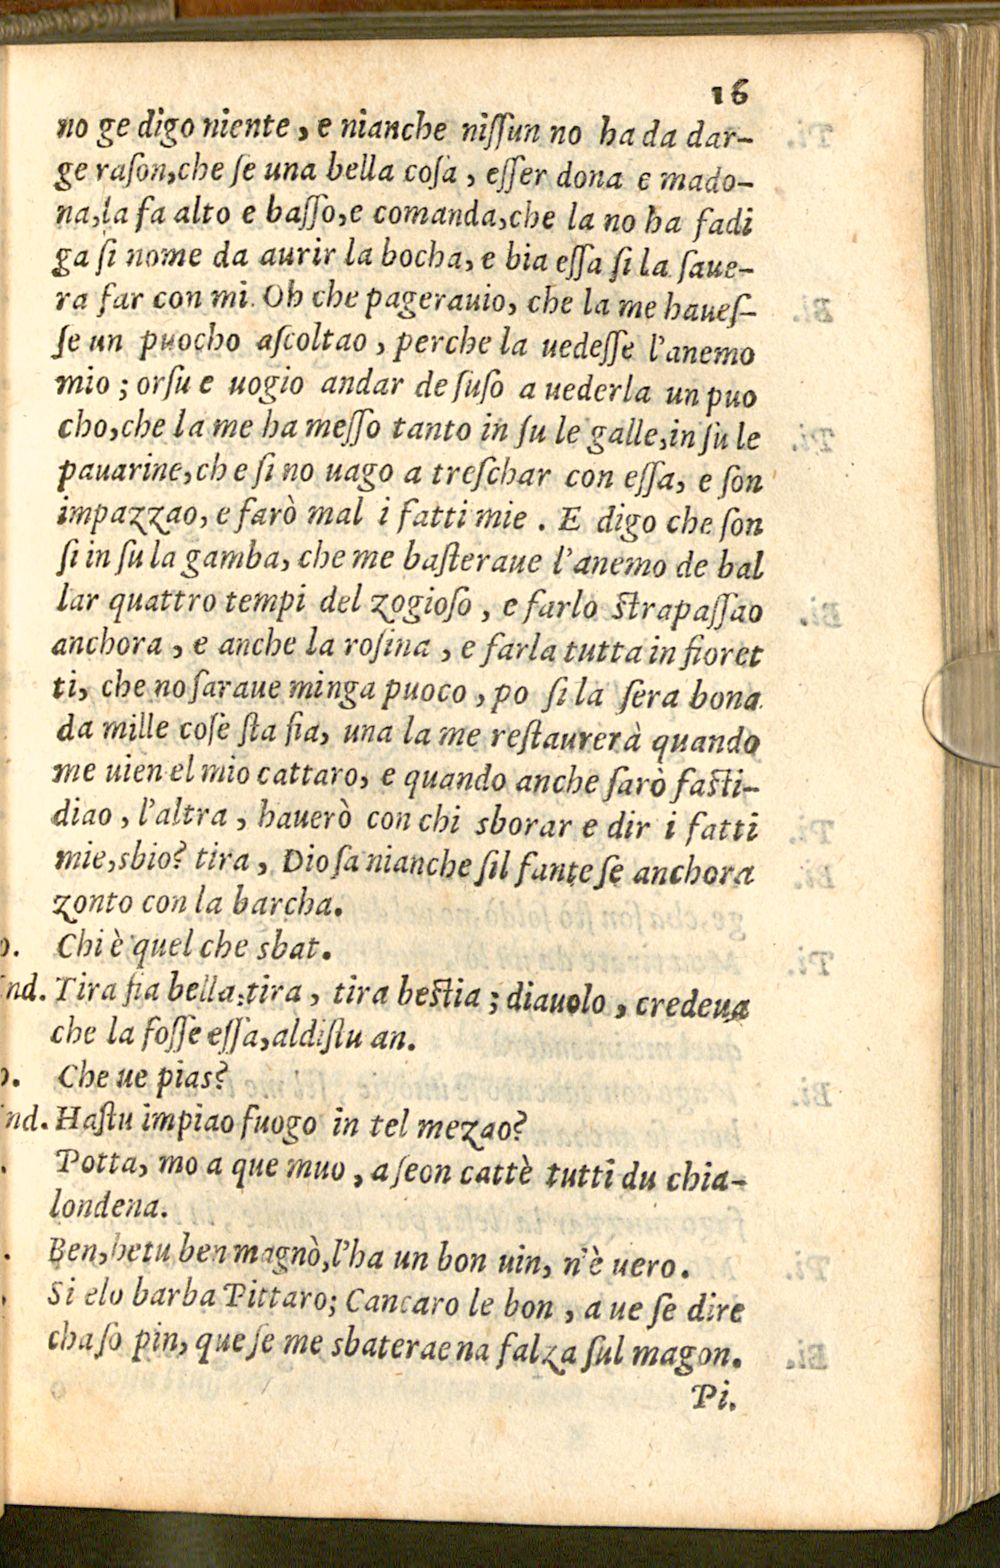 16
no ge digo niente, e nianche niſſun no ha da dar-
ge raſon,che ſe una bella coſa, eſſer dona e mado-
na,la fa alto e baſſo,e comanda,che la no ha fadi
ga ſi nome da aurir la bocha, e bia eſſa ſi la ſaue-
ra far con mi. Oh che pagerauio, che la me haueſ-
ſe un puocho aſcoltao, perche la uedeſſe l'anemo
mio; orſu e uogio andar de ſuſo a uederla un puo
cho,che la me ha meſſo tanto in ſu le galle,in ſu le
pauarine,che ſi no uago a treſchar con eſſa, e ſon
impazzao, e farò mal i fatti mie. E digo che ſon
ſi in ſu la gamba, che me baſteraue l'anemo de bal
lar quattro tempi del zogioſo, e farlo ſtrapaſſao
anchora, e anche la roſina, e farla tutta in fioret
ti, che no ſaraue minga puoco, po ſi la ſera bona
da mille coſe ſta fia, una la me reſtaurerà quando
me uien el mio cattaro, e quando anche ſarò faſti-
diao, l'altra, hauerò con chi sborar e dir i fatti
mie,sbio? tira, Dio ſa nianche ſil fante ſe anchora
zonto con la barcha.
o. Chi è quel che sbat.
nd. Tira fia bella;tira, tira beſtia; diauolo, credeua
che la foſſe eſſa,aldiſtu an.
o. Che ue pias?
nd. Haſtu impiao fuogo in tel mezao?
. Potta, mo a que muo, a ſeon cattè tutti du chia-
londena.
. Ben,hetu ben magnò,l'ha un bon uin, n'è uero.
Si elo barba Pittaro; Cancaro le bon, a ue ſe dire
cha ſo pin, que ſe me sbaterae na falza ſul magon.
Pi.